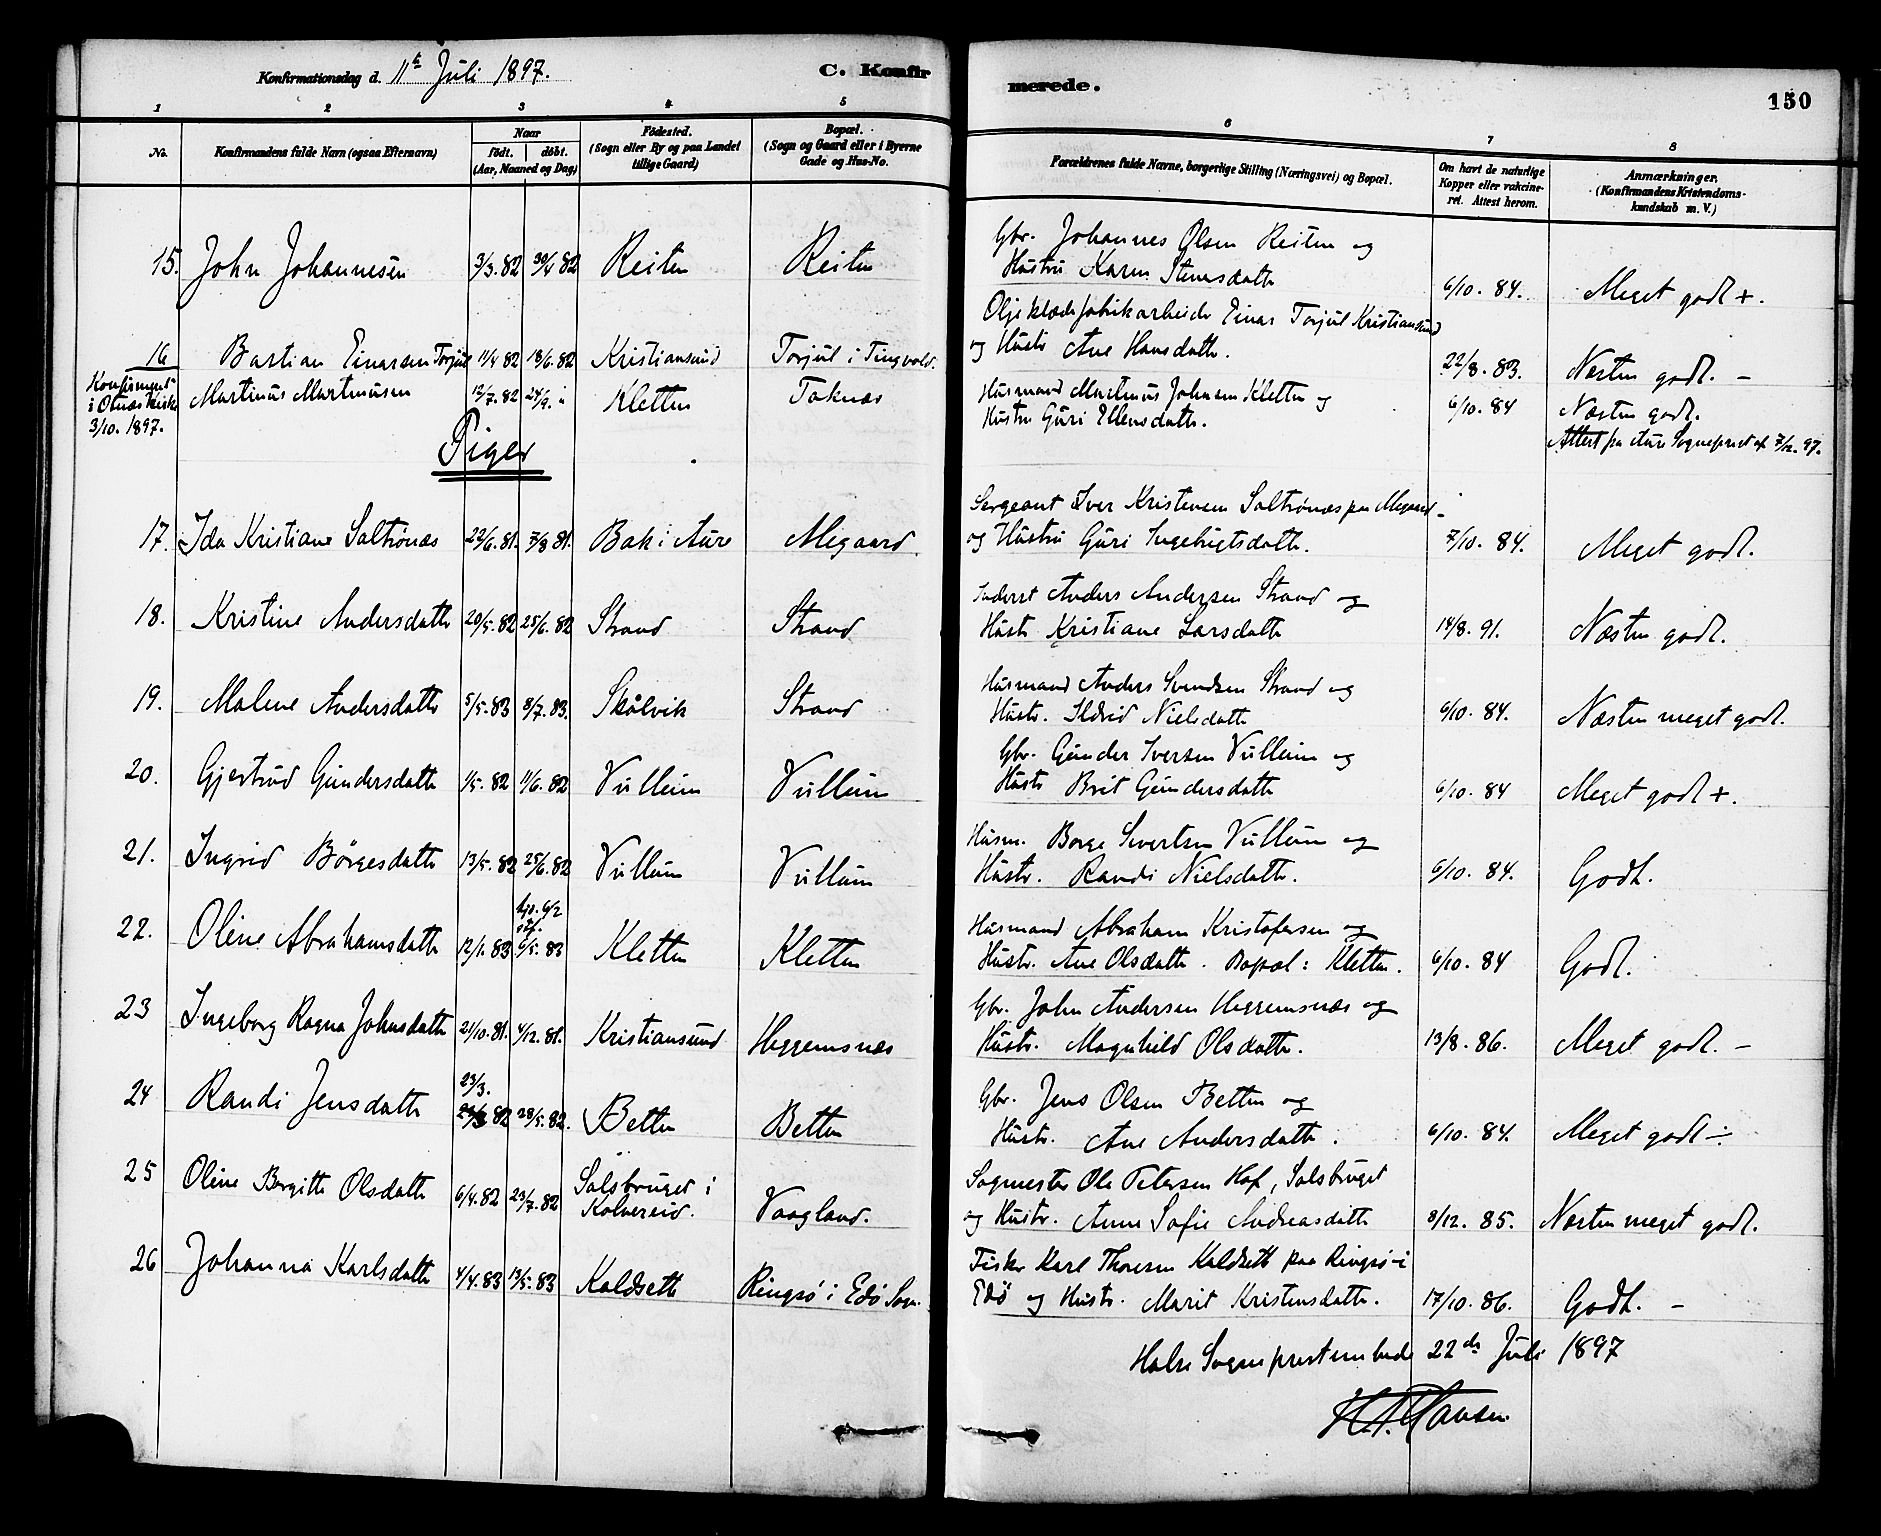 Konfirmationsdag d. 11te Juli 1897.
C. Konfirmerede.
150
1 2 3 4 5 6 7 8
No.
Konfirmandens fulde Navn (ogsaa Efternavn)
Naar
födt. döbt.
(Aar, Maaned og Dag)
Födested.
(Sogn eller By og paa Landet
tillige Gaard)
Bopæl.
(Sogn og Gaard eller i Byerne
Gade og Hus-No.
Forældrenes fulde Navne, borgerlige Stilling (Næringsvei) og Bopæl.
Om havt de naturlige
Kopper eller vakcine-
ret. Attest herom.
Anmærkninger.
(Konfirmandens Kristendoms-
kundskab m. V.)
15. John Johannesen 3/3. 82 30/4 82 Reiten Reiten
Gbr. Johannes Olsen Reiten og
Hustru Karen Stenersdatter
6/10. 84. Meget godt +.
16 Bastian Einarsen Torjul 11/4 82 18/6. 82 Kristiansund Torjul i Tingvold.
Oljeklædefabrikarbeider Einar Torjul Kristiansund
og Hustr Ane Hansdatter.
22/8. 83. Næsten godt. -
Konfirmert
i Otnæs kirke
3/10. 1897.
Martinus Martinusen 12/7. 82 24/9. " Kletten Taknæs
Husmand Martinus Johnsen Kletten og
Hustru Guri Ellensdatter.
6/10. 84 Næsten godt.
Attest fra Aure Sogneprest af 7/12. 97.
Piger
17. Ida Kristiane Saltrönæs 22/6. 81. 7/8 81. Bak i Aure Megaard.
Sergeant Iver Kristensen Saltrönæs paa Megaard
og Hustru Guri Ingebrigtsdatter.
7/10. 84. Meget godt.
18. Kristine Andersdatter 20/5. 82 25/6. 82 Strand Strand
Inderst Anders Andersen Strand og
Hustr Kristiane Larsdatter
14/8. 91. Næsten godt.
19. Malene Andersdatter 5/5. 83 8/7. 83. Skålvik Strand
Husmand Anders Svendsen Strand og
Hustr. Ildrid Nielsdatter
6/10. 84. Næsten meget godt.
20. Gjertrud Gundersdatter 1/5. 82 11/6. 82 Vullum Vullum
Gbr. Gunder Iversen Vullum og
Hustr Brit Gundersdatter
6/10. 84 Meget godt +.
21. Ingrid Börgesdatter 13/5. 82 25/6. 82 Vullum Vullum
Husm. Borge Sivertsen Vullum og
Hustr. Randi Nielsdatter.
6/10. 84. Godt.
22. Oline Abrahamsdatter 12/1. 83 hjd. 6/2 stf. 6/5. 83 Kletten Kletten
Husmand Abraham Kristofersen og
Hustr. Ane Olsdatter. Bopæl: Kletten.
6/10. 84 Godt.
23 Ingeborg Ragna Johnsdatter 21/10. 81. 4/12. 81. Kristiansund Heggemsnæs
Gbr. John Andersen Heggemsnæs og
Hustr. Magnhild Olsdatter.
13/8. 86. Meget godt. -
24 Randi Jensdatter 23/3. 82 28/5. 82. Betten Betten
Gbr. Jens Olsen Betten og
Hustr. Ane Andersdatter.
6/10. 84. Meget godt ÷.
25 Oline Bergitte Olsdatter 6/4. 82 23/7. 82 Salsbruget i
Kolvereid. Vaagland.
Sagmester Ole Petersen Hof, Salsbruget
og Hustr. Anne Sofie Andreasdatter
8/12. 85. Næsten meget godt.
26 Johanna Karlsdatter 4/4. 83 13/5. 83 Koldsett Ringsö i Edö Sogn.
Fisker Karl Thoresen Koldsett paa Ringsö i
Edö og Hustr. Marit Kristensdatter.
17/10. 86. Godt. -
Halse Sogneprestembede 22de Juli 1897
Hansen